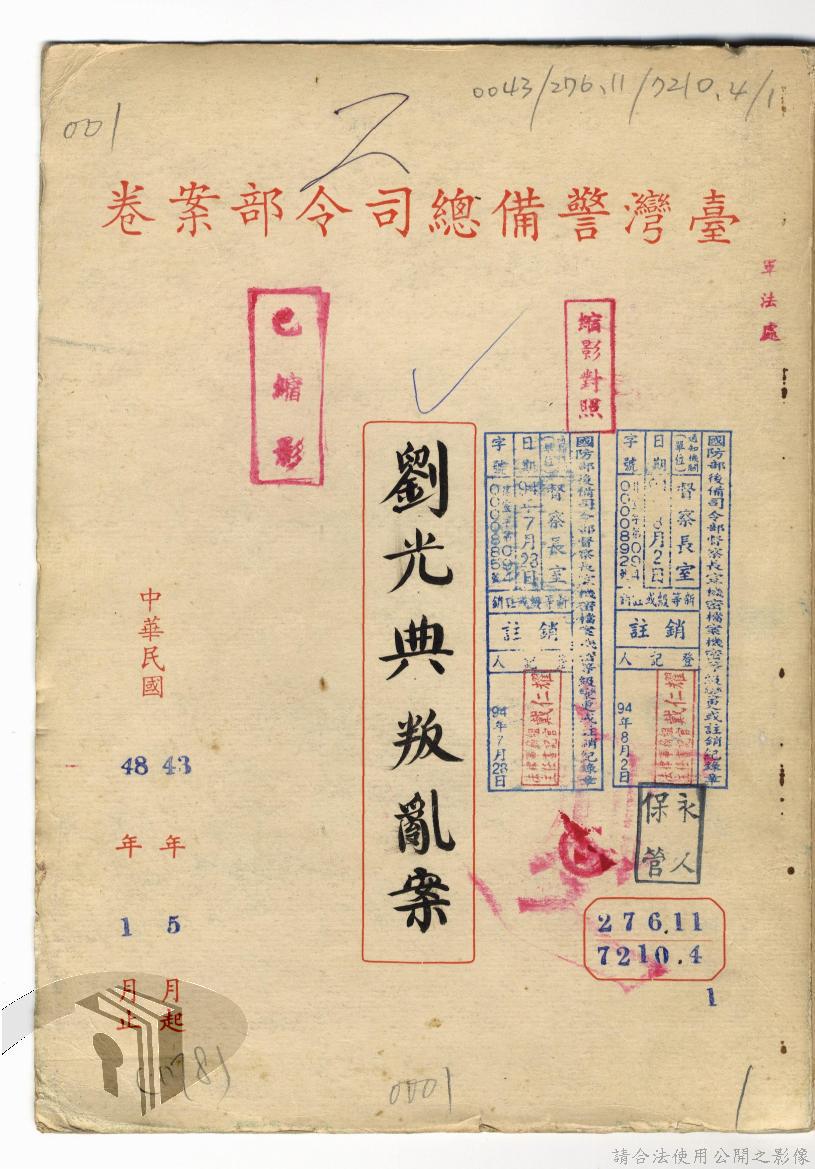 0043/276.11/7210.4/1
001
臺灣警備總司令部案卷
軍法處
已縮影
縮影對照
國防部後備司令部督察長室機密檔案機密等級變更或註銷紀錄章
通知機關(單位)
督察長室
日期
8月2日
字號
0000892號
新等級或註銷
註銷
登記人
戴仁耀
94年8月2日
國防部後備司令部督察長室機密檔案機密等級變更或註銷紀錄章
督察長室
日期
94年7月28日
字號
0000885號
新等級或註銷
註銷
登記人
戴仁耀
94年7月28日
劉光典叛亂案
永久保管
276.11
7210.4
1
中華民國
43年5月起
48年1月止
0001
1
請合法使用公開之影像